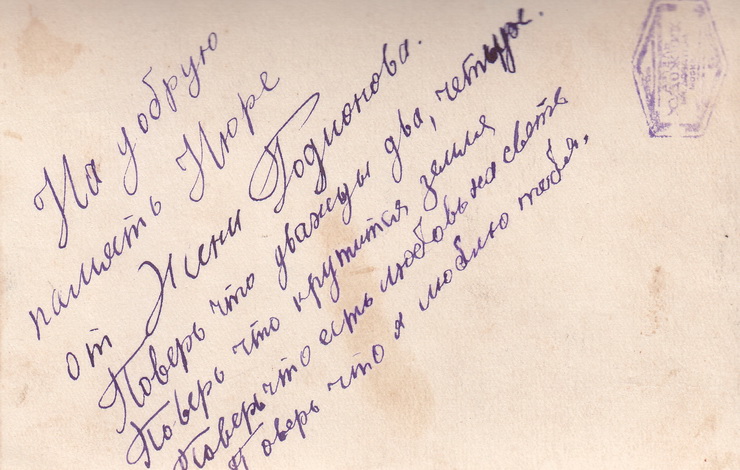 На добрую
память Нюре
от Жени Родионова.
Поверь что дважды два, четыре.
Поверь что крутится земля
Поверь что есть любовь на свете
Поверь что я люблю тебя.